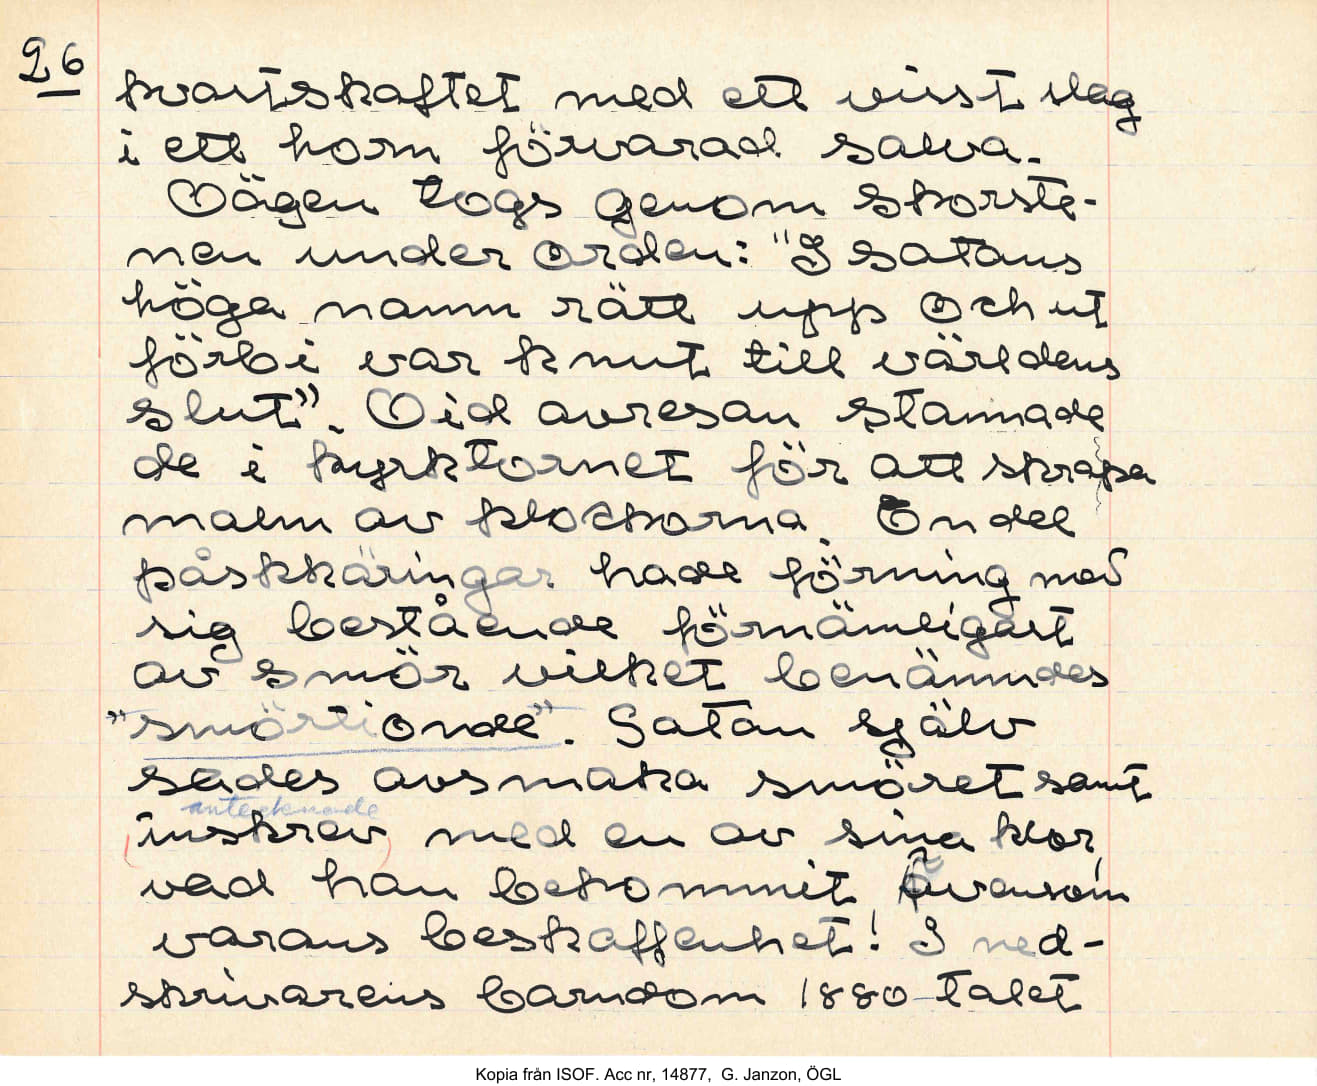 26
kvastskaftet med ett visst slag
i ett horn förvarad salva.
Vägen togs genom skorste-
nen under orden: "I satans
höga namn rätt upp och ut
förbi var knut till världens
slut". Vid avresan stannade
de i kyrktornet för att skrapa
malm av klockorna. En del
påskkäringar hade förning med
sig bestående förnämligast
av smör vilket benämndes
"smörtionde". Satan själv
sades avsmaka smöret samt
antecknade
(inskrev) med en av sina klor,
vad han bekommit ävensom
varans beskaffenhet! I ned-
skrivarens barndom 1880-talet
Kopia från ISOF. Acc nr, 14877, G. Janzon, ÖGL